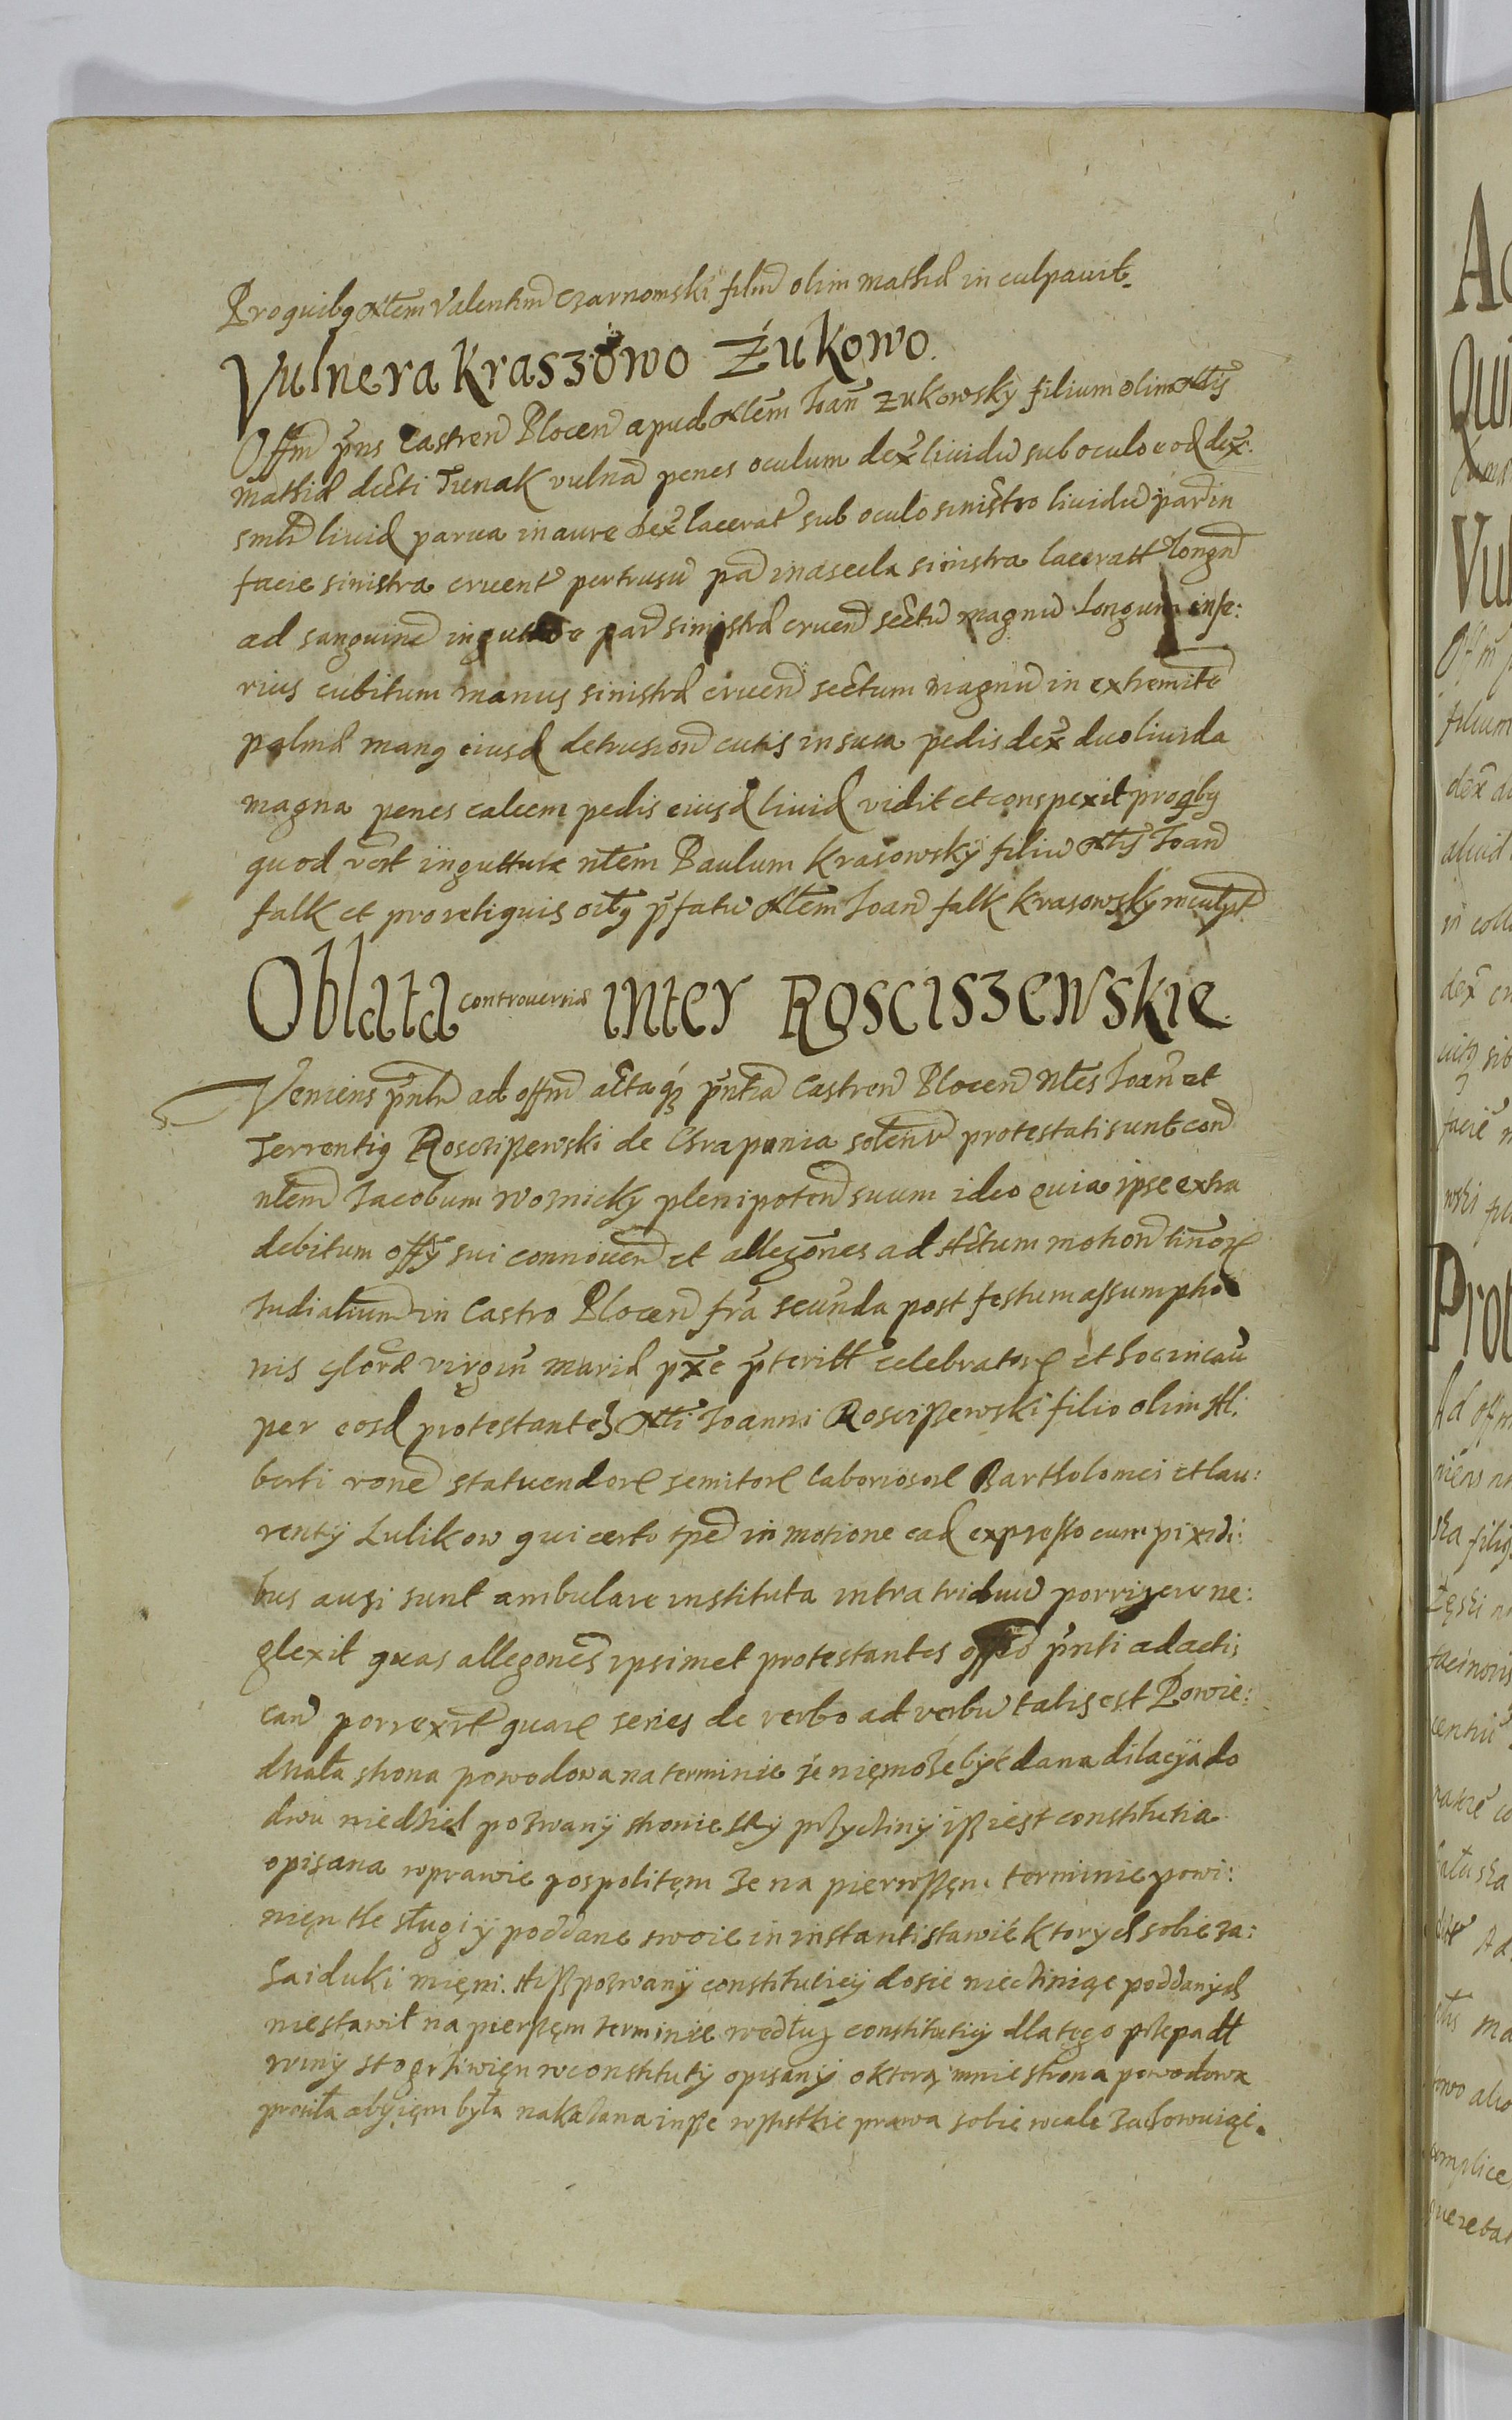 Proquibg Nłem Valentinū Czarnomski filiū olim mathiæ in culpauit.
Vulnera Kraszowo Żukowo.
Offm p̃ns Castren̄ Plocen̄ apud Nłem Joañ Zukowsky filium olim Nlis
mathiæ dicti Tunak vulnā penes oculum dex̃ liuidū sub oculo eod dex̃.
smłr liuid parua in aure dex̃ lacerat̃ sub oculo sinistro liuidū par in
facie sinistra cruent̃ pertusū pā maseela sinistra laceratt longū
ad sanguinē in gutture par sinistræ cruen̄ sectū magnū longum infe:
rius cubitum manus sinistræ cruen̄ sectum magnū in extremite
palmæ mang eiusd detrusion̄ cutis in sura pedis dex̃ duo liuida
magna penes calcem pedis eiusd liuid vidit et conspexit progbg
quod vert in gutture nłem Paulum Krasowsky filiū Nlis Joan̄
falk et proreliquis oitg p̃fatū Nłem Joan̄ falk Krasowsky inculpt
Oblata controuersiæ inter Rosciszewskie
Veniens p̃ntr ad offm̄ actaq̃ p̃ntia Castren̄ Plocen̄ Nłes Joan̄ et
Terrentig Roscißewski de Chraponia solenr̄ protestati sunt con̄
nłem Jacobum Woznicky plenipoten̄ suum ideo quia ipse extra
debitum offy sui connouen̄ et allegões ad stetum motion̄ tin̄or
Judialium in Castro Plocen̄ fr̃a secũnda post festum assumptio
nis glõræ virgiñ mariæ px̃e p̃teritt celebrator et hoc in cau
per eosd protestantes Nli Joanni Roscißewski filio olim Al:
berti ronē statuendor semitor laboriosor Bartholomei et lau:
renty Lulikow qui certo tpe in motione ead expresso cum pixidi:
bus ausi sunt ambulare instituta intra triduū porrigere ne:
glexit quas allegones ipsimet protestantes offio p̃nti ad actis
can̄ porrexrt quar series de verbo ad verbū talis est Powie:
działa strona powodowa na terminie że niemoże być dana dilacyja do
dwu niedziel pozwany stronie tky przyczyny iß iest constitutia
opisana wprawie pospolitem że na pierwßem terminie powi:
nien tke sługi y poddane swoie in instanti stawić ktorych sobie za:
haiduki mieni. Aiß pozwany constitutiey dosic nieczyniąc poddanych
niestawił na pierßem terminie według constitutiy dlatego przepadł
winy sto grziwien wconstituty opisany oktorą mnie strona powodowa
prosiła abyiem była nakazana inße wßistkie prawa sobie wcale zachowuiąc.